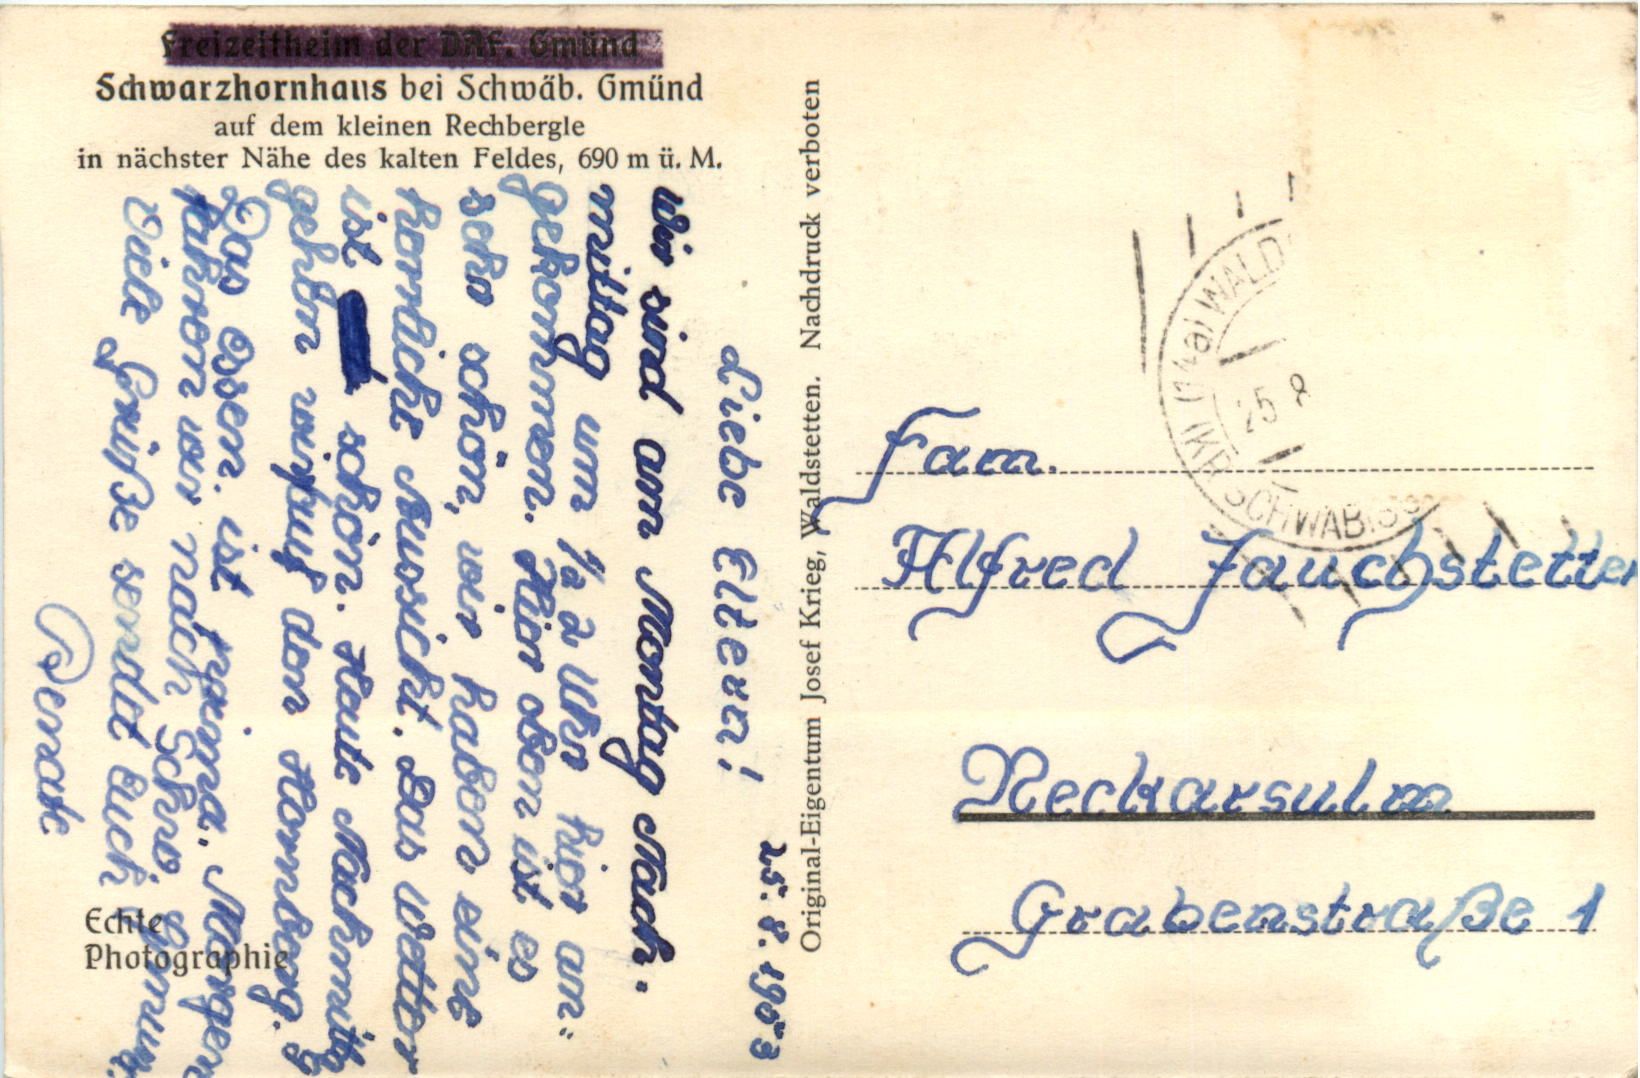 Freizeitheim der DAF. Gmünd
Schwarzhornhaus bei Schwäb. Gmünd
auf dem kleinen Rechbergle
in nächster Nähe des kalten Feldes, 690 m ü. M.
25.8.1953
Liebe Eltern!
Wir sind am Montag Nach-
mittag um 1/2 2 Uhr hier an-
gekommen. Hier oben ist es
sehr schön, wir haben eine
herrliche Aussicht. Das Wetter
ist schön. Heute Nachmittg
gehen wir auf den Hornberg.
Das Essen ist prima. Morgen
fahren wir nach Schw. Gmünd.
Viele Grüße sendet Euch
Renate
Echte
Photographie
Original-Eigentum Josef Krieg, Waldstetten. Nachdruck verboten
(14a) WALD
ÜBER SCHWÄBISCH
25.8
Fam.
Alfred Jauchstetter
Neckarsulm
Grabenstraße 1